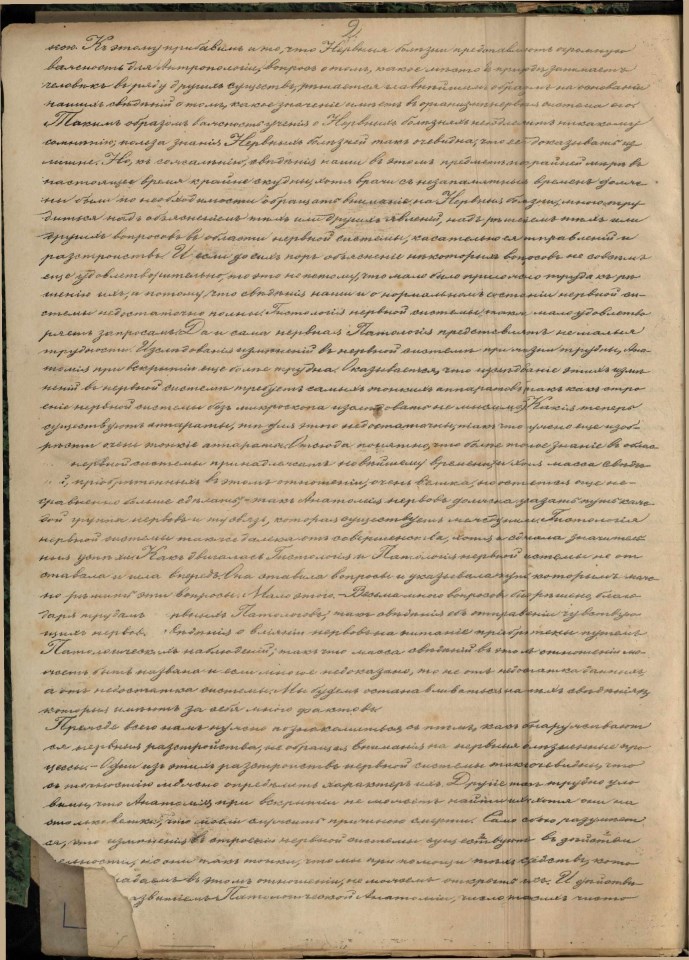 2
ною. Къ этому прибавимъ и то, что Нервныя болѣзни представляютъ огромную
важность для Антропологіи, вопросъ о томъ, какое мѣсто въ природѣ занимаетъ
человѣкъ въ ряду другихъ существъ, рѣшается главнѣйшимъ образомъ на основаніи
нашихъ свѣдѣній о томъ, какое значеніе имѣетъ въ организмѣ нервная система его
Такимъ образомъ важность ученія о Нервныхъ болѣзняхъ не подлежитъ никакому
сомнѣнію, польза знанія Нервныхъ болѣзней такъ очевидна, что её доказывать из
лишне. Но, къ сожалѣнію, свѣдѣнія наши въ этомъ предметѣ по крайней мѣрѣ въ
настоящее время крайне скудны, хотя врачи съ незапамятныхъ временъ долж-
ны были по необходимости обращать вниманіе на Нервныя болѣзни, много тру-
диться надъ объясненіемъ тѣхъ или другихъ явленій, надъ рѣшеніемъ тѣхъ или
другихъ вопросовъ въ области нервной системы, касательно ея отправленій и
разстройствъ. И если до сихъ поръ объясненіе некоторыхъ вопросовъ не совсѣмъ
еще удовлетворительно, то это не потому, что мало было приложено труда къ рѣ-
шенію ихъ, а потому, что свѣдѣнія наши и о нормальномъ состояніи нервной си-
стемы недостаточно полны. Гистологія нервной системы пока мало удовлетво
ряетъ запросамъ. Да и сама нервная Патологія представляетъ не малыя
трудности. Изслѣдованія измѣненій въ нервной системѣ при жизни трудны, Ана-
томія при вскрытіи еще болѣе трудна. Оказывается, что изслѣдованіе этихъ измѣ-
неній въ нервной системѣ требуетъ самыхъ тонкихъ аппаратовъ, такъ какъ стро
еніе нервной системы безъ микроскопа изслѣдовать не мыслимо. Какіе теперь
существуютъ аппараты, то для этого недостаточны, такъ что нужно еще изоб
рѣсти очень тонкіе аппараты. Отсюда понятно, что болѣе точное знаніе въ облас
нервной системы принадлежитъ новѣйшему времени, и хотя масса свѣдѣ-
й, пріобрѣтенныхъ въ этомъ отношеніи, очень велика, но остается еще не-
сравненно больше сдѣлать; такъ Анатомія нервовъ должна указать путь каж-
дой группы нервовъ и ту связь, которая существуетъ между ними. Гистологія
нервной системы также далека отъ совершенства, хотя и сдѣлала значитель
ные успѣхи. Какъ двигалась Гистологія и Патологія нервной системы не от
ставала и шла впередъ. Она ставила вопросы и указывала пути, которымъ мож-
но рѣшить эти вопросы. Мало этого. Весьма много вопросовъ было рѣшено, благо-
даря трудамъ Патологовъ; такъ свѣдѣнія объ отправленіи чувствую
щихъ нервовъ, свѣдѣнія о вліяніи нервовъ на питаніе пріобрѣтены путемъ
Патологическихъ наблюденій; такъ что масса свѣдѣній въ этомъ отношеніи мо-
жетъ быть названа и если многое недоказано, то не отъ недостатка данныхъ,
а отъ недостатка системы. Мы будемъ останавливаться на тѣхъ свѣдѣніяхъ,
которыя имѣютъ за себя много фактовъ
Прежде всего намъ нужно познакомиться съ тѣмъ, какъ обнаруживают
ся нервныя разстройства, не обращая вниманія на нервныя болѣзненные про
цессы. — Одни изъ этихъ разстройствъ нервной системы такъ очевидны, что
съ точностію можно опредѣлить характеръ ихъ. Другіе такъ трудно уло
вимы, что Анатомія при вскрытіи не можетъ найти ихъ, хотя они на
столько вѣски, что могли служить причиною смерти. Само собою разумѣет
ся, что измѣненія въ строеніи нервной системы существуютъ въ дѣйстви
ельности, но они такъ тонки, что мы при помощи тѣхъ средствъ, кото
адаемъ въ этомъ отношеніи, не можемъ открыть ихъ. И дѣйстви
азвитіемъ Патологической Анатоміи, число такихъ чисто